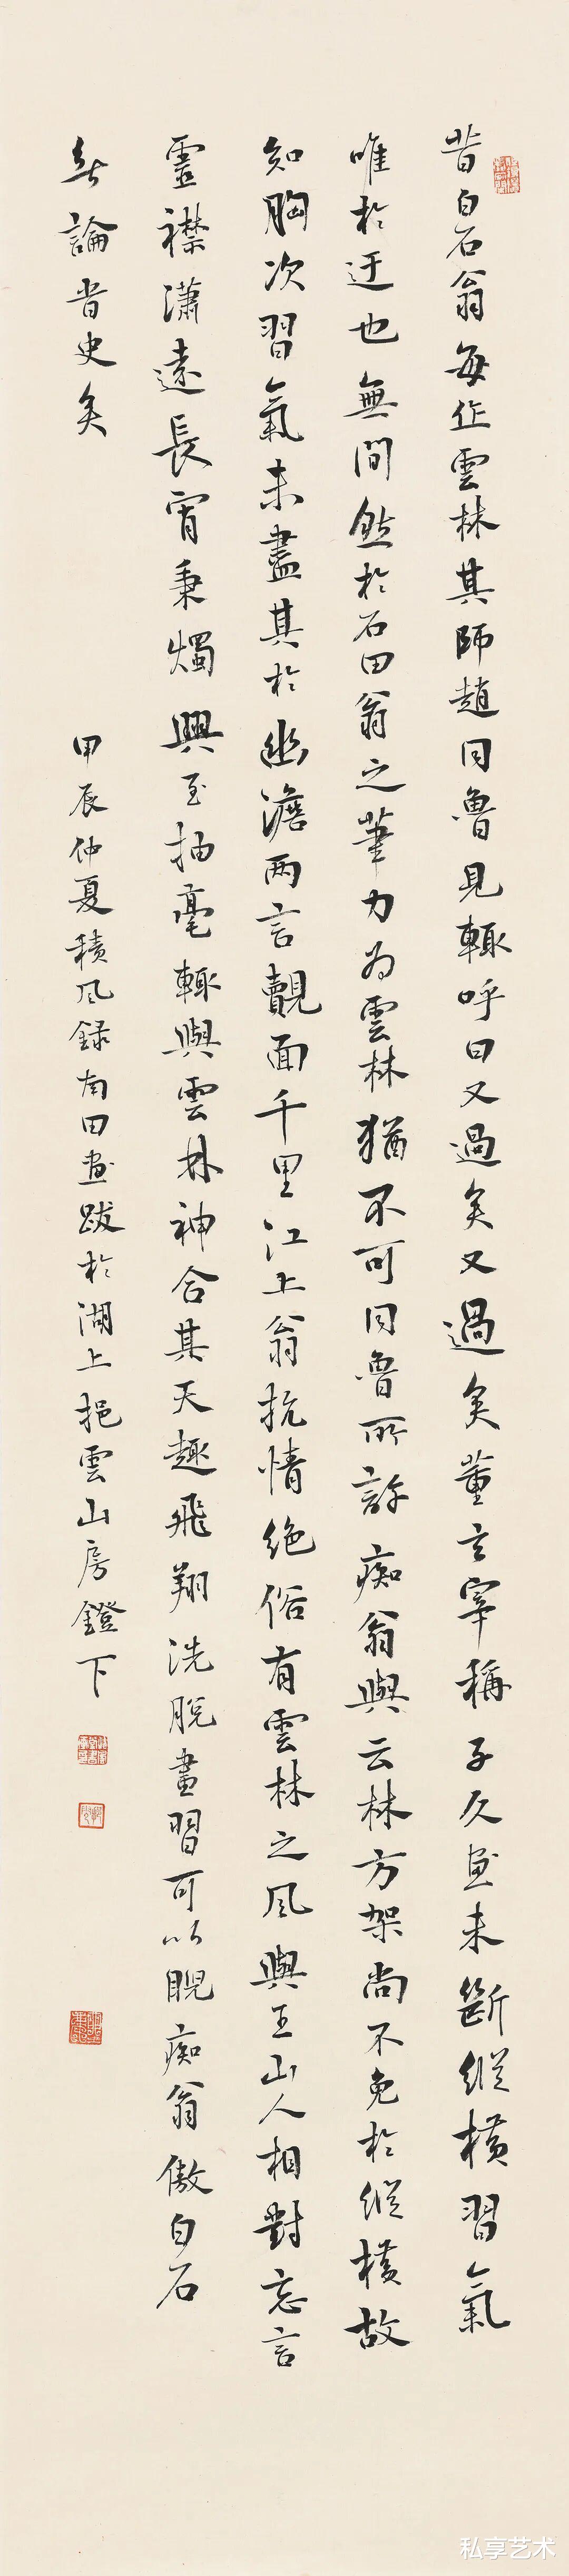 昔白石翁每作雲林其師趙同魯見輒呼曰又過矣又過矣董玄宰稱子久画未斷縱横習氣
唯於迂也無間然於石田翁之筆力为雲林猶不可同魯所許痴翁與云林方架尚不免於縱横故
知胸次習氣未盡其於幽澹兩言覿面千里江上翁抗情绝俗有雲林之風與王山人相對忘言
靈襟瀟遠長宵秉燭興至抽毫輒與雲林神合其天趣飛翔洗脫畫習可以睨痴翁傲白石
無論昔史矣
甲辰仲夏積风録南田画跋於湖上挹雲山房鐙下
私享艺术